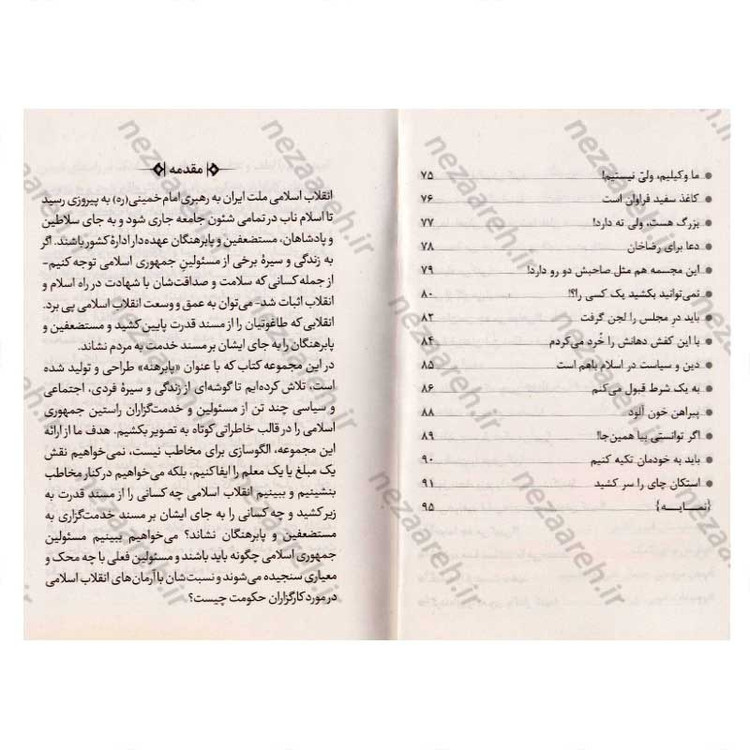 ما وکیلیم، ولیّ نیستیم! ۷۵
کاغذ سفید فراوان است ۷۶
بزرگ هست، ولی نه دارد! ۷۷
دعا برای رضاخان ۷۸
این مجسمه هم مثل صاحبش دو رو دارد! ۷۹
نمی‌توانید بکشید یک کسی را؟! ۸۰
باید درِ مجلس را لجن گرفت ۸۲
با این کفش دهانش را خُرد می‌کردم ۸۴
دین و سیاست در اسلام باهم است ۸۵
به یک شرط قبول می‌کنم ۸۶
پیراهن خون آلود ۸۸
اگر توانستی بیا همین‌جا! ۸۹
باید به خودمان تکیه کنیم ۹۰
استکان چای را سر کشید ۹۱
{نمـــایـــه} ۹۵
مقدمه
انقلاب اسلامی ملت ایران به رهبری امام خمینی(ره) به پیروزی رسید
تا اسلام ناب در تمامی شئون جامعه جاری شود و به جای سلاطین
و پادشاهان، مستضعفین و پابرهنگان عهده‌دار ادارهٔ کشور باشند. اگر
به زندگی و سیرهٔ برخی از مسئولینِ جمهوری اسلامی توجه کنیم-
از جمله کسانی که سلامت و صداقت‌شان با شهادت در راه اسلام و
انقلاب اثبات شد- می‌توان به عمق و وسعت انقلاب اسلامی پی برد.
انقلابی که طاغوتیان را از مسند قدرت پایین کشید و مستضعفین و
پابرهنگان را به جای ایشان بر مسند خدمت به مردم نشاند.
در این مجموعه کتاب که با عنوان «پابرهنه» طراحی و تولید شده
است، تلاش کرده‌ایم تا گوشه‌ای از زندگی و سیرهٔ فردی، اجتماعی
و سیاسی چند تن از مسئولین و خدمت‌گزاران راستین جمهوری
اسلامی را در قالب خاطراتی کوتاه به تصویر بکشیم. هدف ما از ارائه
این مجموعه، الگوسازی برای مخاطب نیست، نمی‌خواهیم نقش
یک مبلغ یا یک معلم را ایفا کنیم، بلکه می‌خواهیم در کنار مخاطب
بنشینیم و ببینیم انقلاب اسلامی چه کسانی را از مسند قدرت به
زیر کشید و چه کسانی را به جای ایشان بر مسند خدمت‌گزاری به
مستضعفین و پابرهنگان نشاند؟ می‌خواهیم ببینیم مسئولین
جمهوری اسلامی چگونه باید باشند و مسئولین فعلی با چه محک و
معیاری سنجیده می‌شوند و نسبت‌شان با آرمان‌های انقلاب اسلامی
در مورد کارگزاران حکومت چیست؟
nezaareh.ir